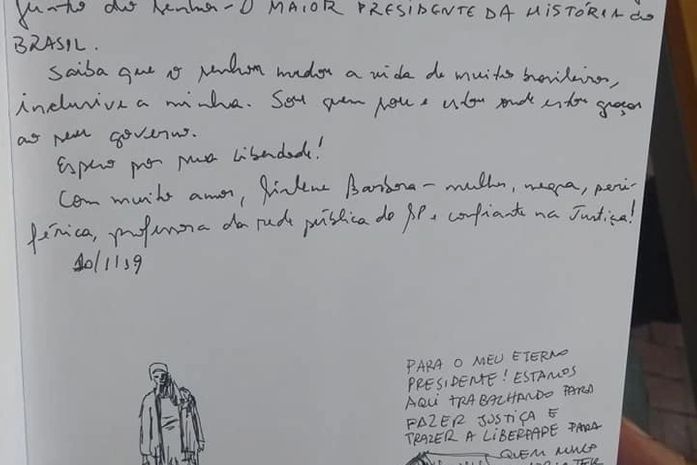 junto do senhor - O MAIOR PRESIDENTE DA HISTÓRIA do
BRASIL.
Saiba que o senhor mudou a vida de muitos brasileiros,
inclusive a minha. Sou quem sou e estou onde estou graças
ao seu governo.
Espero por sua liberdade!
Com muito amor, Sirlene Barbosa - mulher, negra, peri-
férica, professora da rede pública de SP e confiante na Justiça!
10/1/19
PARA O MEU ETERNO
PRESIDENTE! ESTAMOS
AQUI TRABALHANDO PARA
FAZER JUSTIÇA E
TRAZER A LIBERDADE PARA
QUEM NUNCA
TER